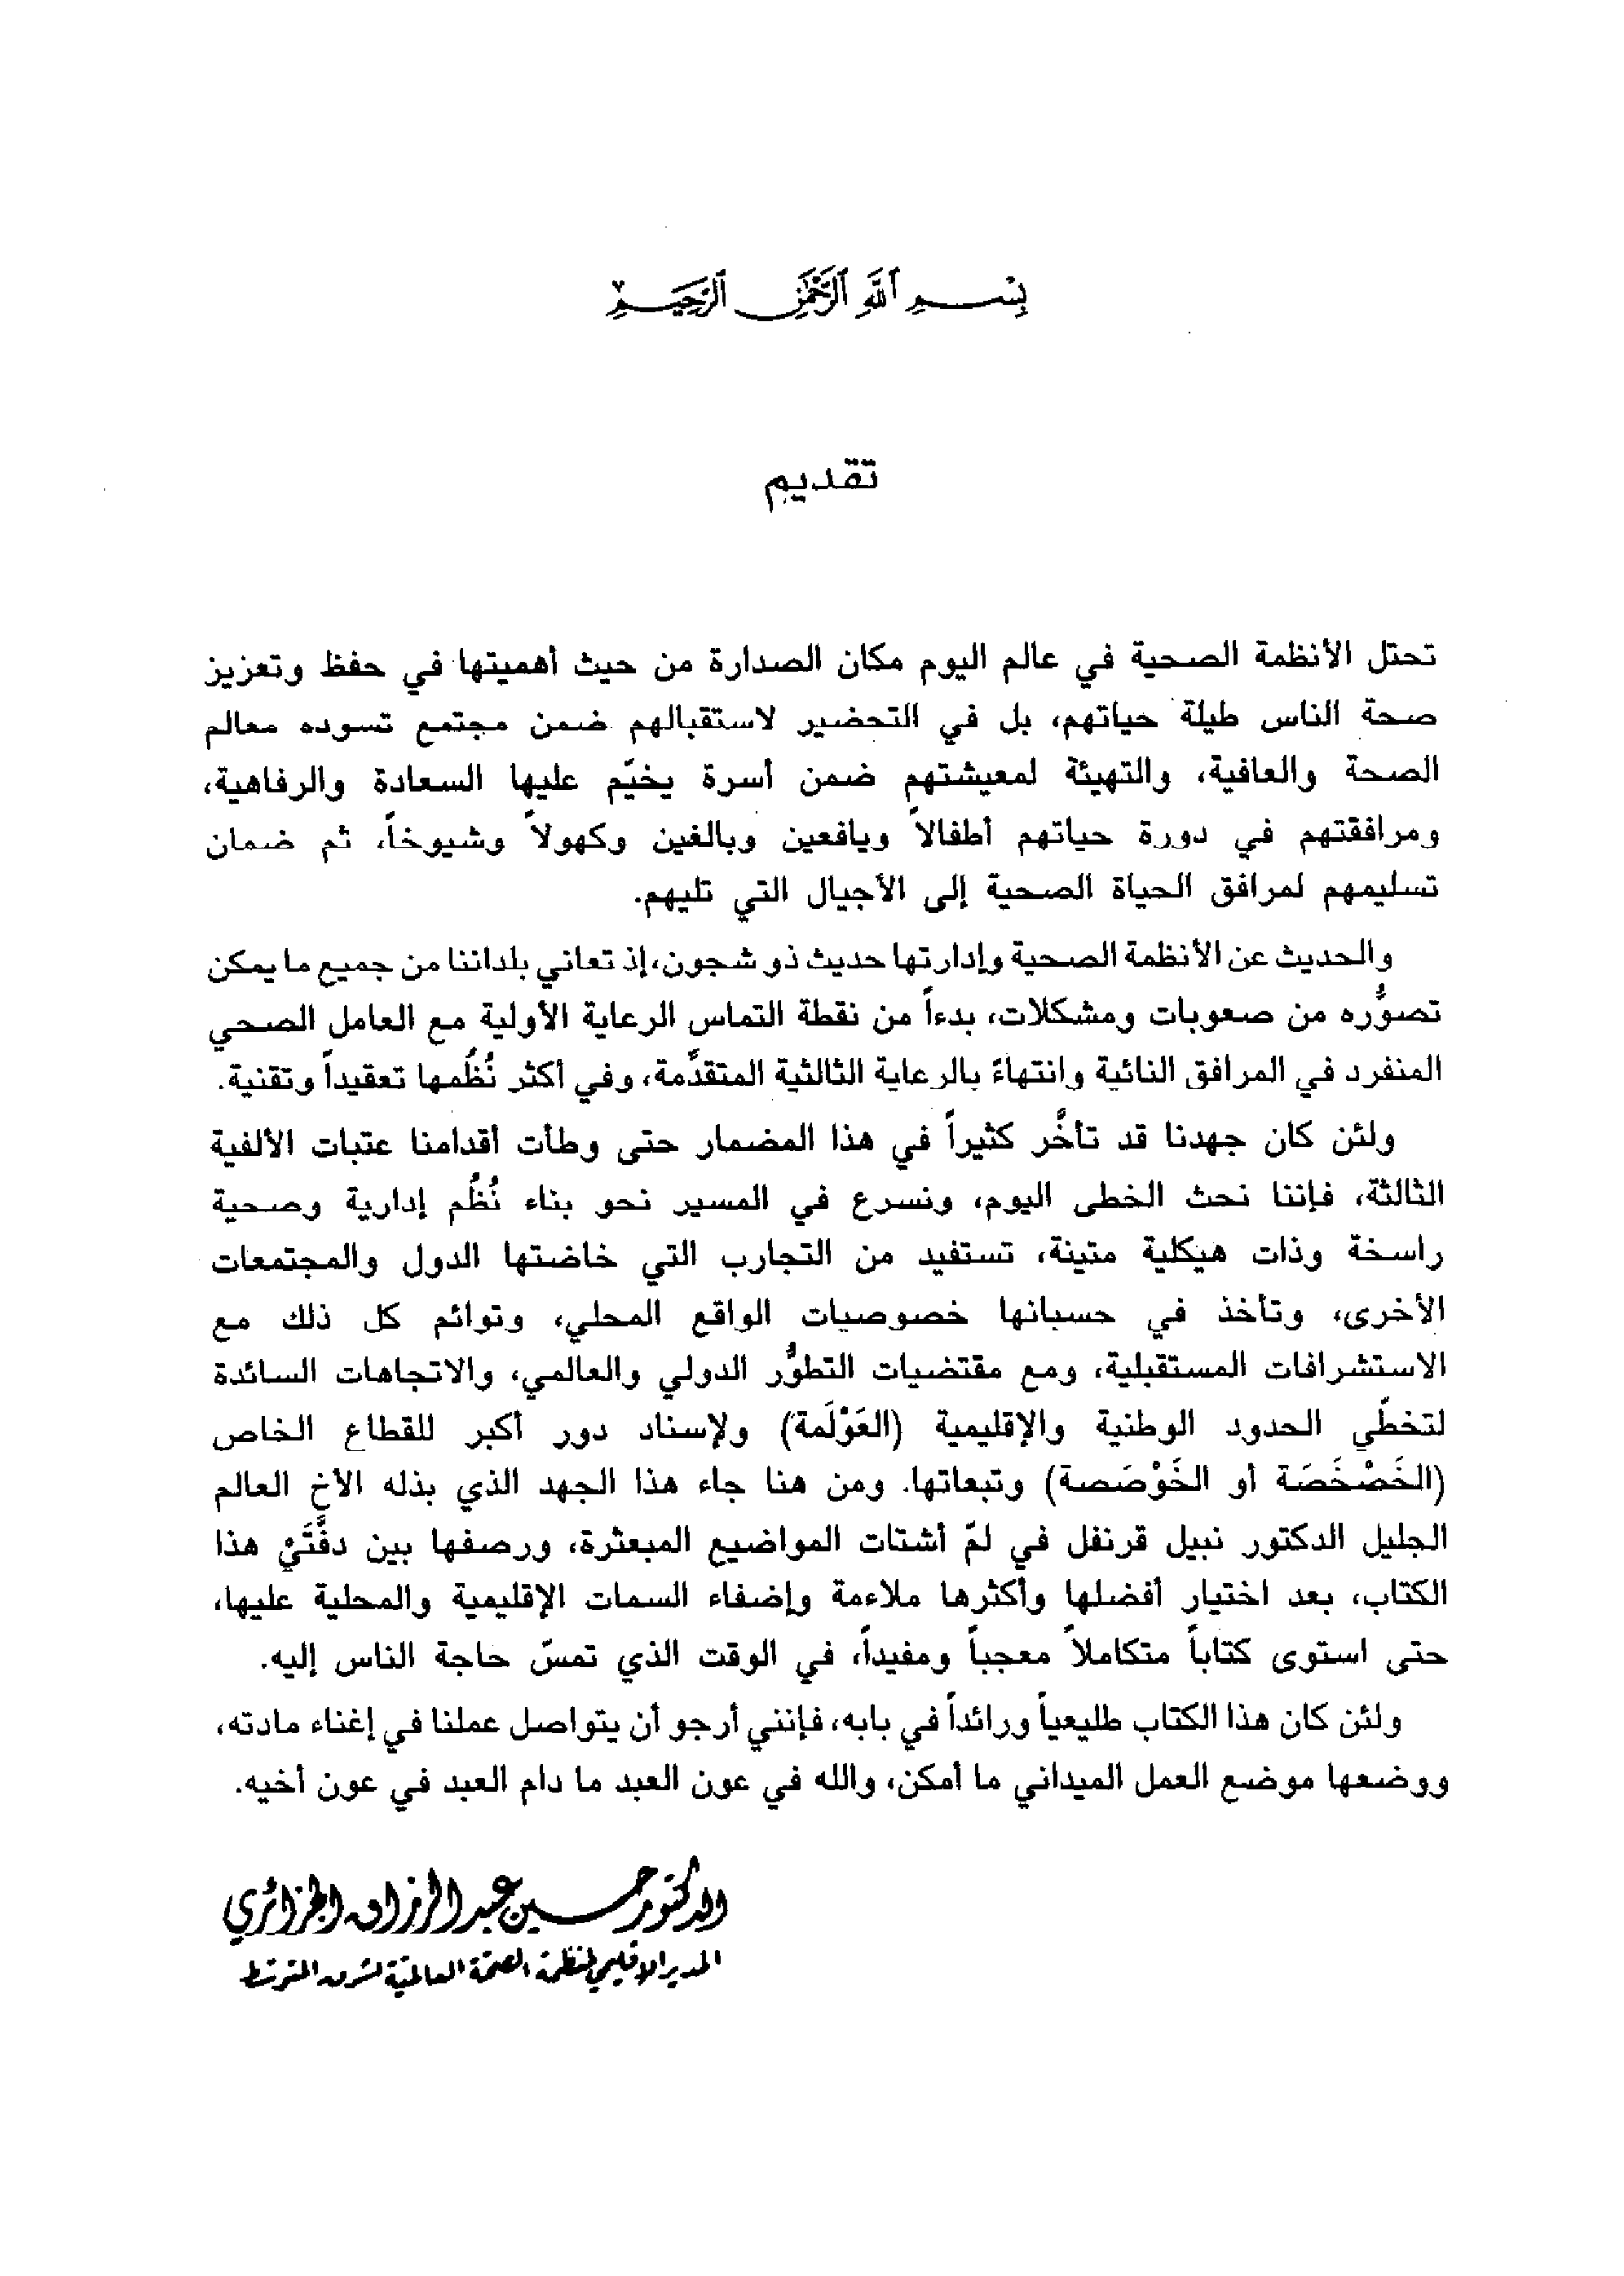 بِسْمِ ٱللَّهِ ٱلرَّحْمَٰنِ ٱلرَّحِيمِ
تقديم
تحتل الأنظمة الصحية في عالم اليوم مكان الصدارة من حيث أهميتها في حفظ وتعزيز
صحة الناس طيلة حياتهم، بل في التحضير لاستقبالهم ضمن مجتمع تسوده معالم
الصحة والعافية، والتهيئة لمعيشتهم ضمن أسرة يخيّم عليها السعادة والرفاهية،
ومرافقتهم في دورة حياتهم أطفالاً ويافعين وبالغين وكهولاً وشيوخاً، ثم ضمان
تسليمهم لمرافق الحياة الصحية إلى الأجيال التي تليهم.
والحديث عن الأنظمة الصحية وإدارتها حديث ذو شجون، إذ تعاني بلداننا من جميع ما يمكن
تصوُّره من صعوبات ومشكلات، بدءاً من نقطة التماس الرعاية الأولية مع العامل الصحي
المنفرد في المرافق النائية وانتهاءً بالرعاية الثالثية المتقدِّمة، وفي أكثر نُظُمها تعقيداً وتقنية.
ولئن كان جهدنا قد تأخَّر كثيراً في هذا المضمار حتى وطأت أقدامنا عتبات الألفية
الثالثة، فإننا نحث الخطى اليوم، ونسرع في المسير نحو بناء نُظُم إدارية وصحية
راسخة وذات هيكلية متينة، تستفيد من التجارب التي خاضتها الدول والمجتمعات
الأخرى، وتأخذ في حسبانها خصوصيات الواقع المحلي، وتوائم كل ذلك مع
الاستشرافات المستقبلية، ومع مقتضيات التطوُّر الدولي والعالمي، والاتجاهات السائدة
لتخطّي الحدود الوطنية والإقليمية (العَوْلَمة) ولإسناد دور أكبر للقطاع الخاص
(الخَصْخَصَة أو الخَوْصَصة) وتبعاتها. ومن هنا جاء هذا الجهد الذي بذله الأخ العالم
الجليل الدكتور نبيل قرنفل في لمّ أشتات المواضيع المبعثرة، ورصفها بين دفَّتَيْ هذا
الكتاب، بعد اختيار أفضلها وأكثرها ملاءمة وإضفاء السمات الإقليمية والمحلية عليها،
حتى استوى كتاباً متكاملاً معجباً ومفيداً، في الوقت الذي تمسّ حاجة الناس إليه.
ولئن كان هذا الكتاب طليعياً ورائداً في بابه، فإنني أرجو أن يتواصل عملنا في إغناء مادته،
ووضعها موضع العمل الميداني ما أمكن، والله في عون العبد ما دام العبد في عون أخيه.
الدكتور حسين عبد الرزاق الجزائري
المدير الإقليمي لمنظمة الصحة العالمية لشرق المتوسط